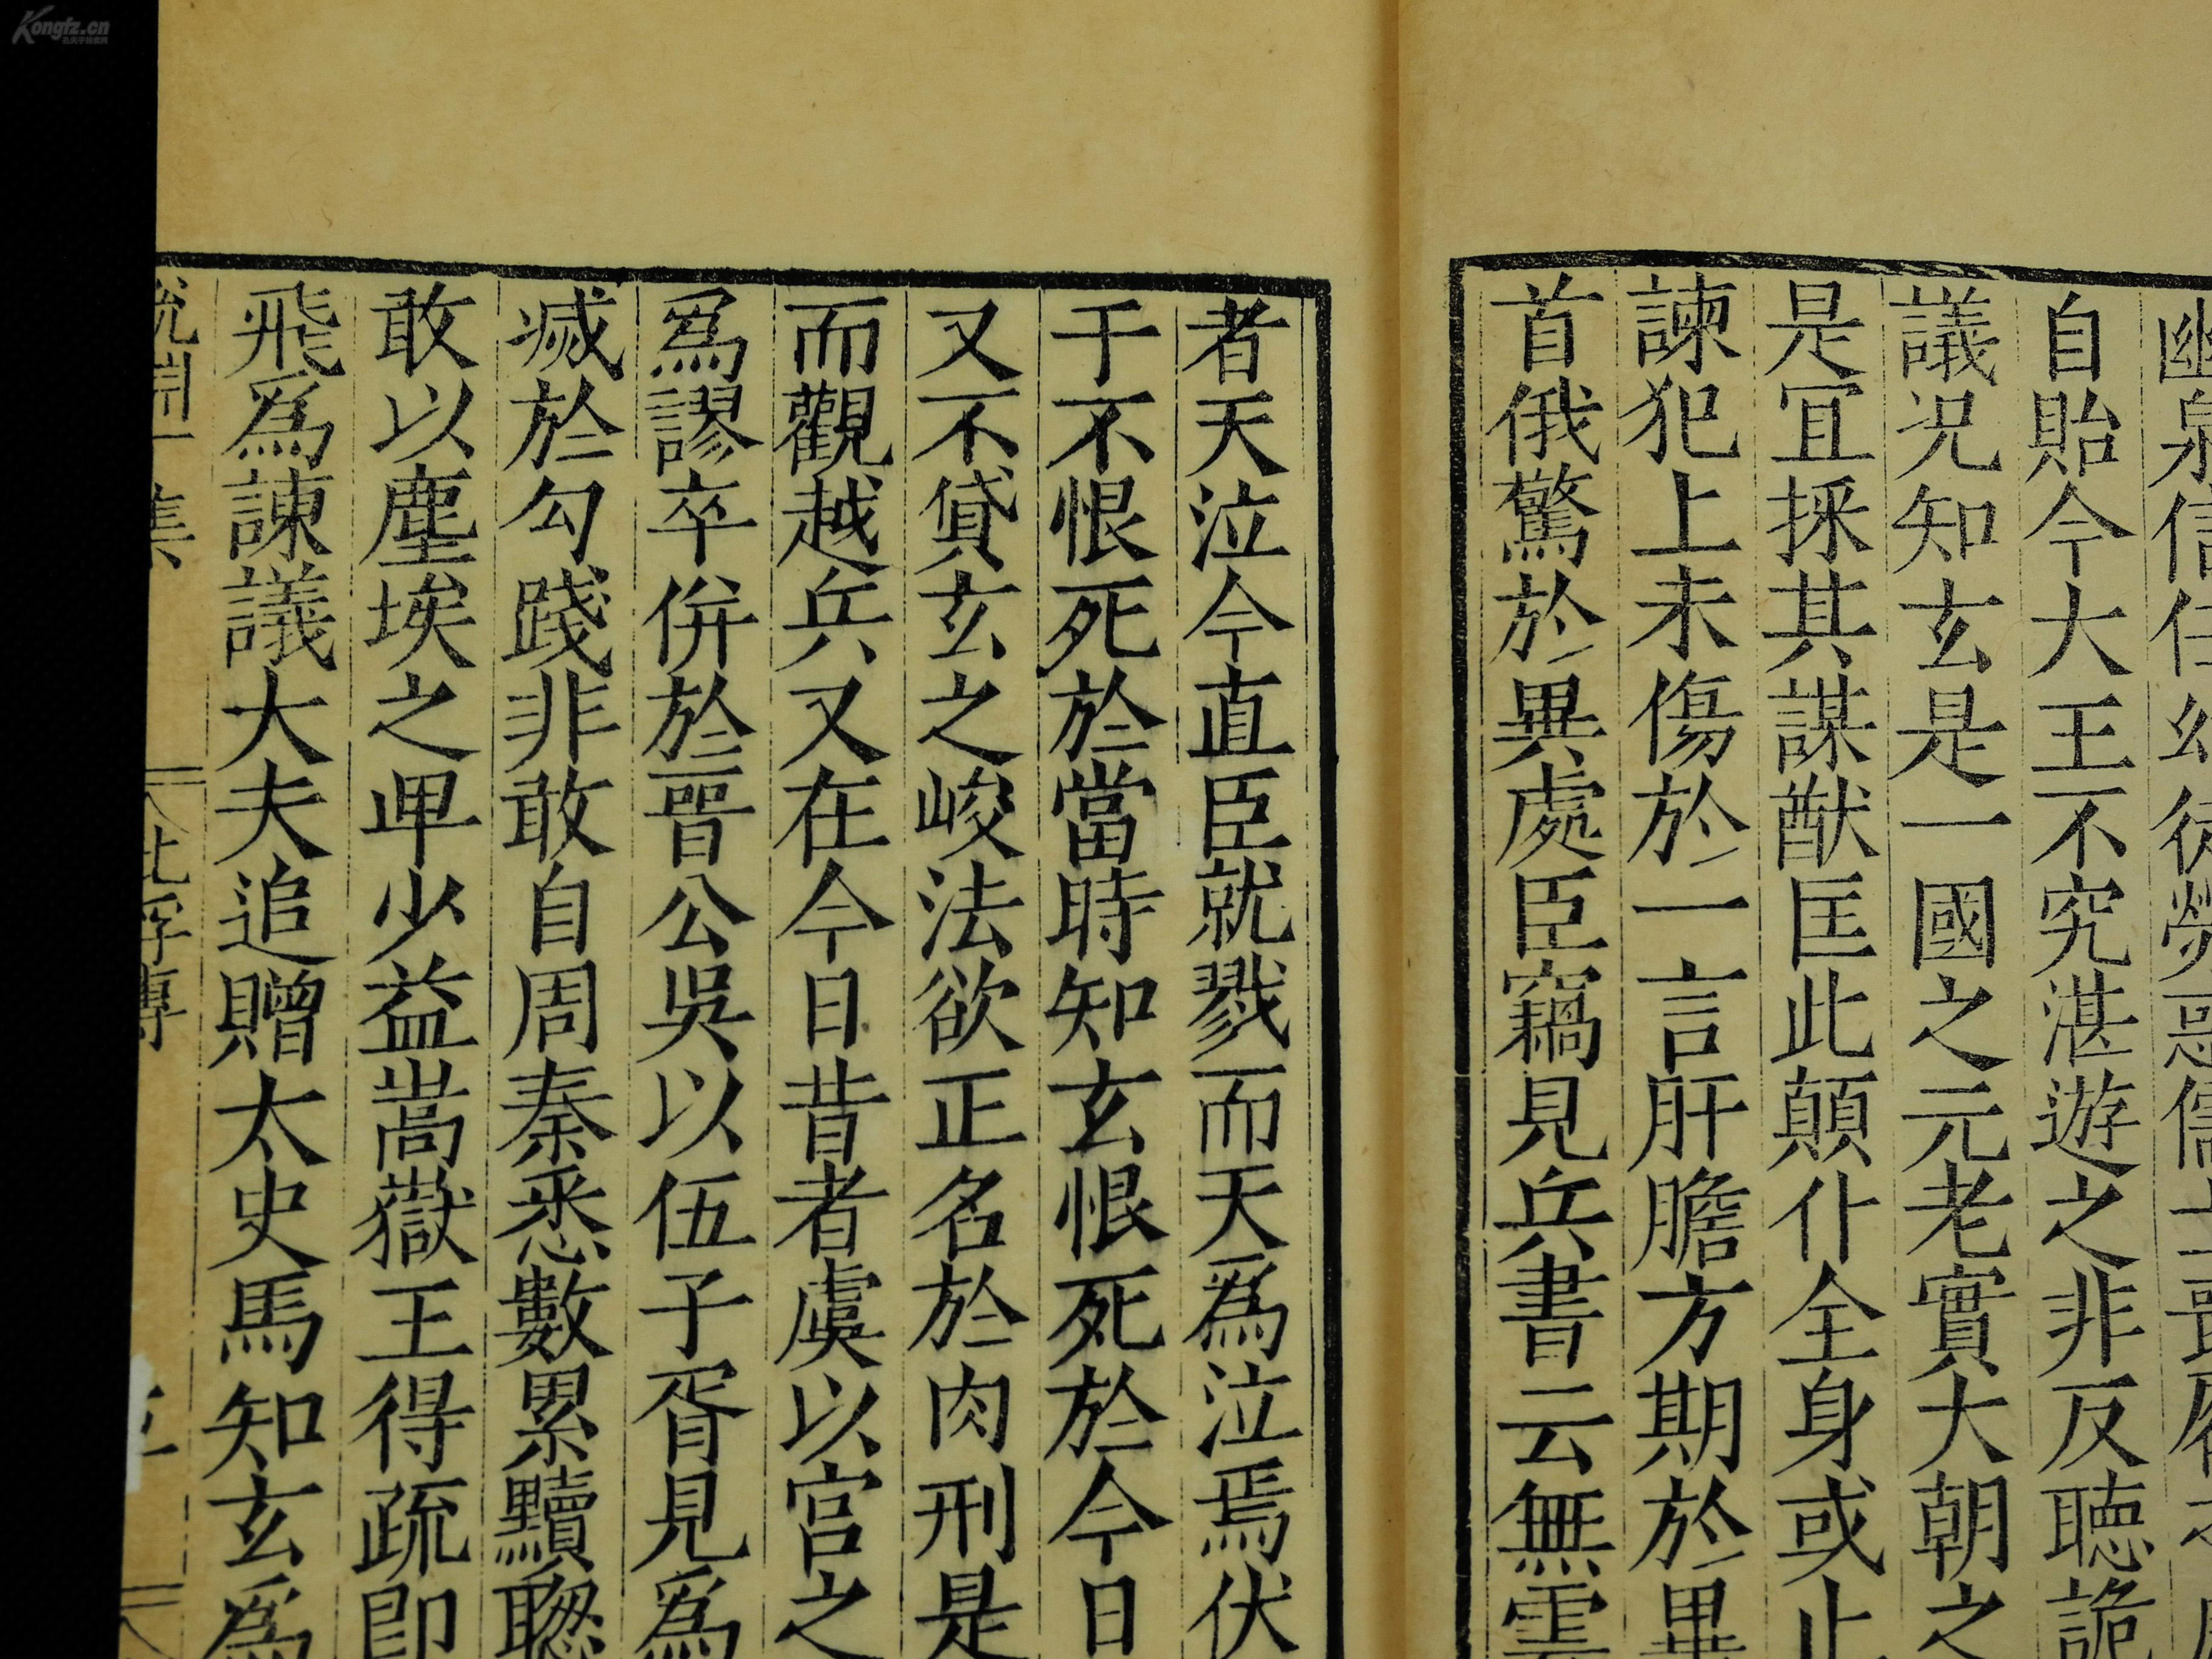 自貽今大王不究湛遊之非反聴詭
議况知玄是一國之元老實大朝之
是宜採其謀猷匡此顛仆全身或止
諫犯上未傷於一言肝膽方期於畢
首俄驚於異處臣竊見兵書云無雲
者天泣今直臣就戮而天為泣焉伏
于不恨死於當時知玄恨死於今日
又不貸玄之峻法欲正名於肉刑是
而觀越兵又在今日昔者虞以宫之
爲謬卒併於晉公吳以伍子胥見爲
滅於勾踐非敢自周秦悉數累黷聦
敢以塵埃之卑少益嵩嶽王得疏即
飛爲諫議大夫追贈太史馬知玄爲
Kongfz.cn